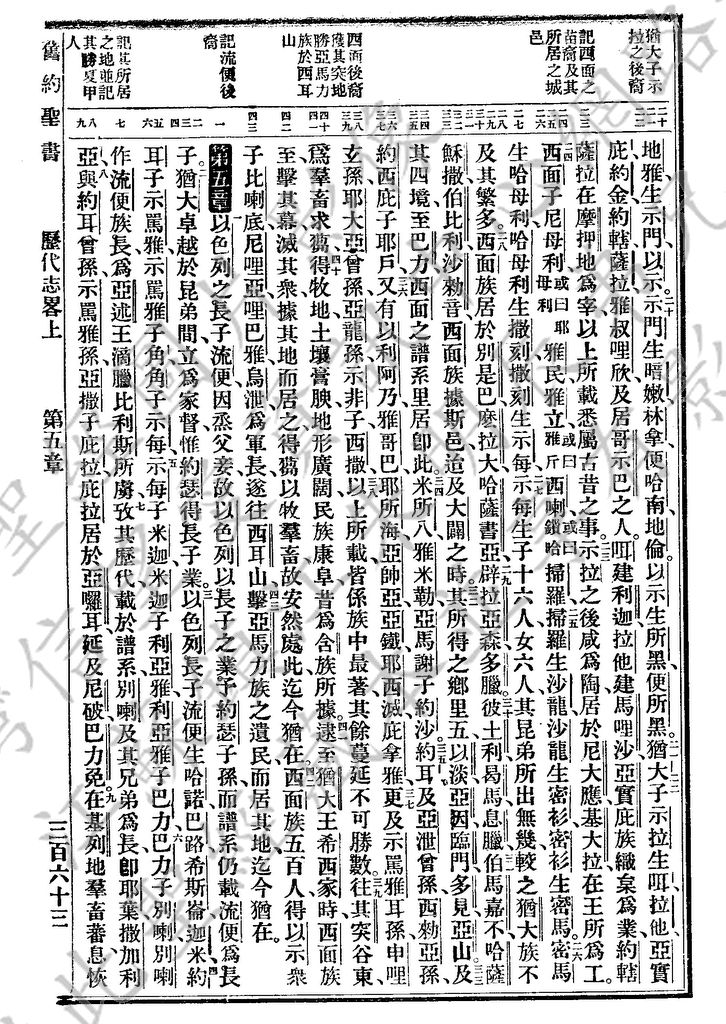 猶大子示
拉之後裔
記西面之
苗裔及其
所居之城
邑
西面後裔
獲其突地
勝亞馬力
族於西耳
山
記流便後
裔
記其所居
之地並記
其勝夏甲
人
地雅生示門以示示門生暗嫩林拿便哈南地倫以示生所黑便所黑猶大子示拉生咡拉他亞實
庇約金約轄薩拉雅叔哩欣及居哥示巴之人咡建利迦拉他建馬哩沙亞實庇族織枲為業約轄
薩拉在摩押地為宰以上所載悉屬古昔之事示拉之後咸為陶居於尼大應基大拉在王所為工
西面子尼母利或曰耶母利雅民雅立或曰雅斤西喇或曰鎖哈掃羅掃羅生沙龍沙龍生密衫密衫生密馬密馬
生哈母利哈母利生撒刻撒刻生示每示每生子十六人女六人其昆弟所出無幾較之猶大族不
及其繁多西面族居於別是巴麽拉大哈薩書亞辟拉亞森多臘彼土利曷馬息臘伯馬嘉不哈薩
穌撒伯比利沙勑音西面族據斯邑迨及大闢之時其所得之鄉里五以淡亞因臨門多見亞山及
其四境至巴力西面之譜系里居卽此米所八雅米勒亞馬謝子約沙約耳及亞泄曾孫西勑亞孫
約西庇子耶戶又有以利阿乃雅哥巴耶所海亞帥亞亞鐵耶西滅庇拿雅更及示罵雅耳孫申哩
玄孫耶大亞曾孫亞龍孫示非子西撒以上所載皆係族中最著其餘蔓延不可勝數往其突谷東
為羣畜求芻得牧地土壤膏腴地形廣闊民族康阜昔為含族所據逮至猶大王希西家時西面族
至擊其幕滅其衆據其地而居之得芻以牧羣畜故安然處此迄今猶在西面族五百人得以示衆
子比喇底尼哩亞哩巴雅烏泄為軍長遂往西耳山擊亞馬力族之遺民而居其地迄今猶在
第五章以色列之長子流便因烝父妾故以色列以長子之業予約瑟子孫而譜系仍載流便為長
子猶大卓越於昆弟間立為家督惟約瑟得長子業以色列長子流便生哈諾巴路希斯崙迦米約
耳子示罵雅示罵雅子角角子示每示每子米迦米迦子利亞雅利亞雅子巴力巴力子別喇別喇
作流便族長為亞述王滴臘比利斯所虜攷其歷代載於譜系別喇及其兄弟為長卽耶葉撒加利
亞與約耳曾孫示罵雅孫亞撒子庇拉庇拉居於亞囉耳延及尼破巴力免在基列地羣畜蕃息恢
舊約聖書
歷代志畧上
第五章
三百六十三